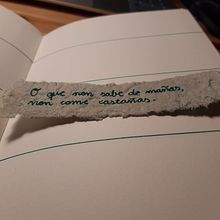 O que non sabe de mañas,
non come castañas.